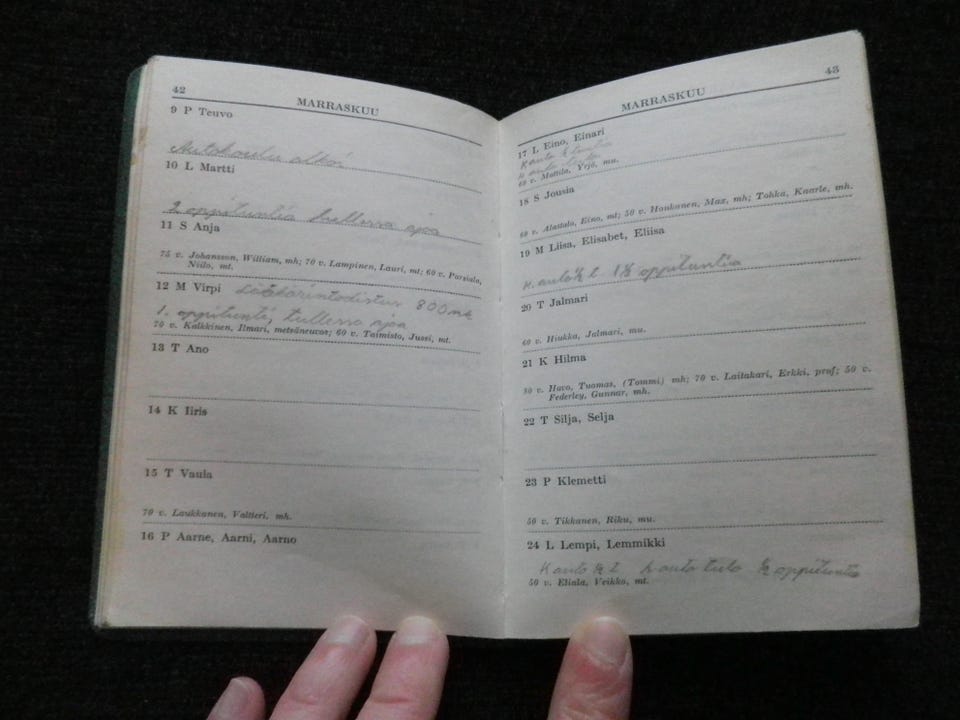 42
MARRASKUU
9 P Teuvo
Autokoulu alkoi
10 L Martti
2 oppituntia tullessa ajoa
11 S Anja
75 v. Johansson, William, mh; 70 v. Lampinen, Lauri, mt; 60 v. Porsiala,
Niilo, mt.
12 M Virpi Lääkärintodistus 800 mk
1. oppitunti, tullessa ajoa
70 v. Kalkkinen, Ilmari, metsäneuvor; 60 v. Taimisto, Jussi, mt.
13 T Ano
14 K Iiris
15 T Vaula
70 v. Laukkanen, Valtteri, mh.
16 P Aarne, Aarni, Aarno
43
MARRASKUU
17 L Eino, Einari
K auto
K auto
60 v. Mattila, Yrjö, mu.
18 S Jousia
60 v. Alattalo, Eino, mt; 50 v. Honkanen, Max, mh; Tohka, Kaarle, mh.
19 M Liisa, Elisabet, Eliisa
K. auto ½ t. 1½ oppituntia
20 T Jalmari
60 v. Hiukka, Jalmari, mu.
21 K Hilma
80 v. Havo, Tuomas, (Tommi) mh; 70 v. Laitakari, Erkki, prof; 50 v.
Federley, Gunnar, mh.
22 T Silja, Selja
23 P Klemetti
50 v. Tikkanen, Riku, mu.
24 L Lempi, Lemmikki
K auto ½ t auto tulo ½ oppituntia
50 v. Eliala, Veikko, mt.